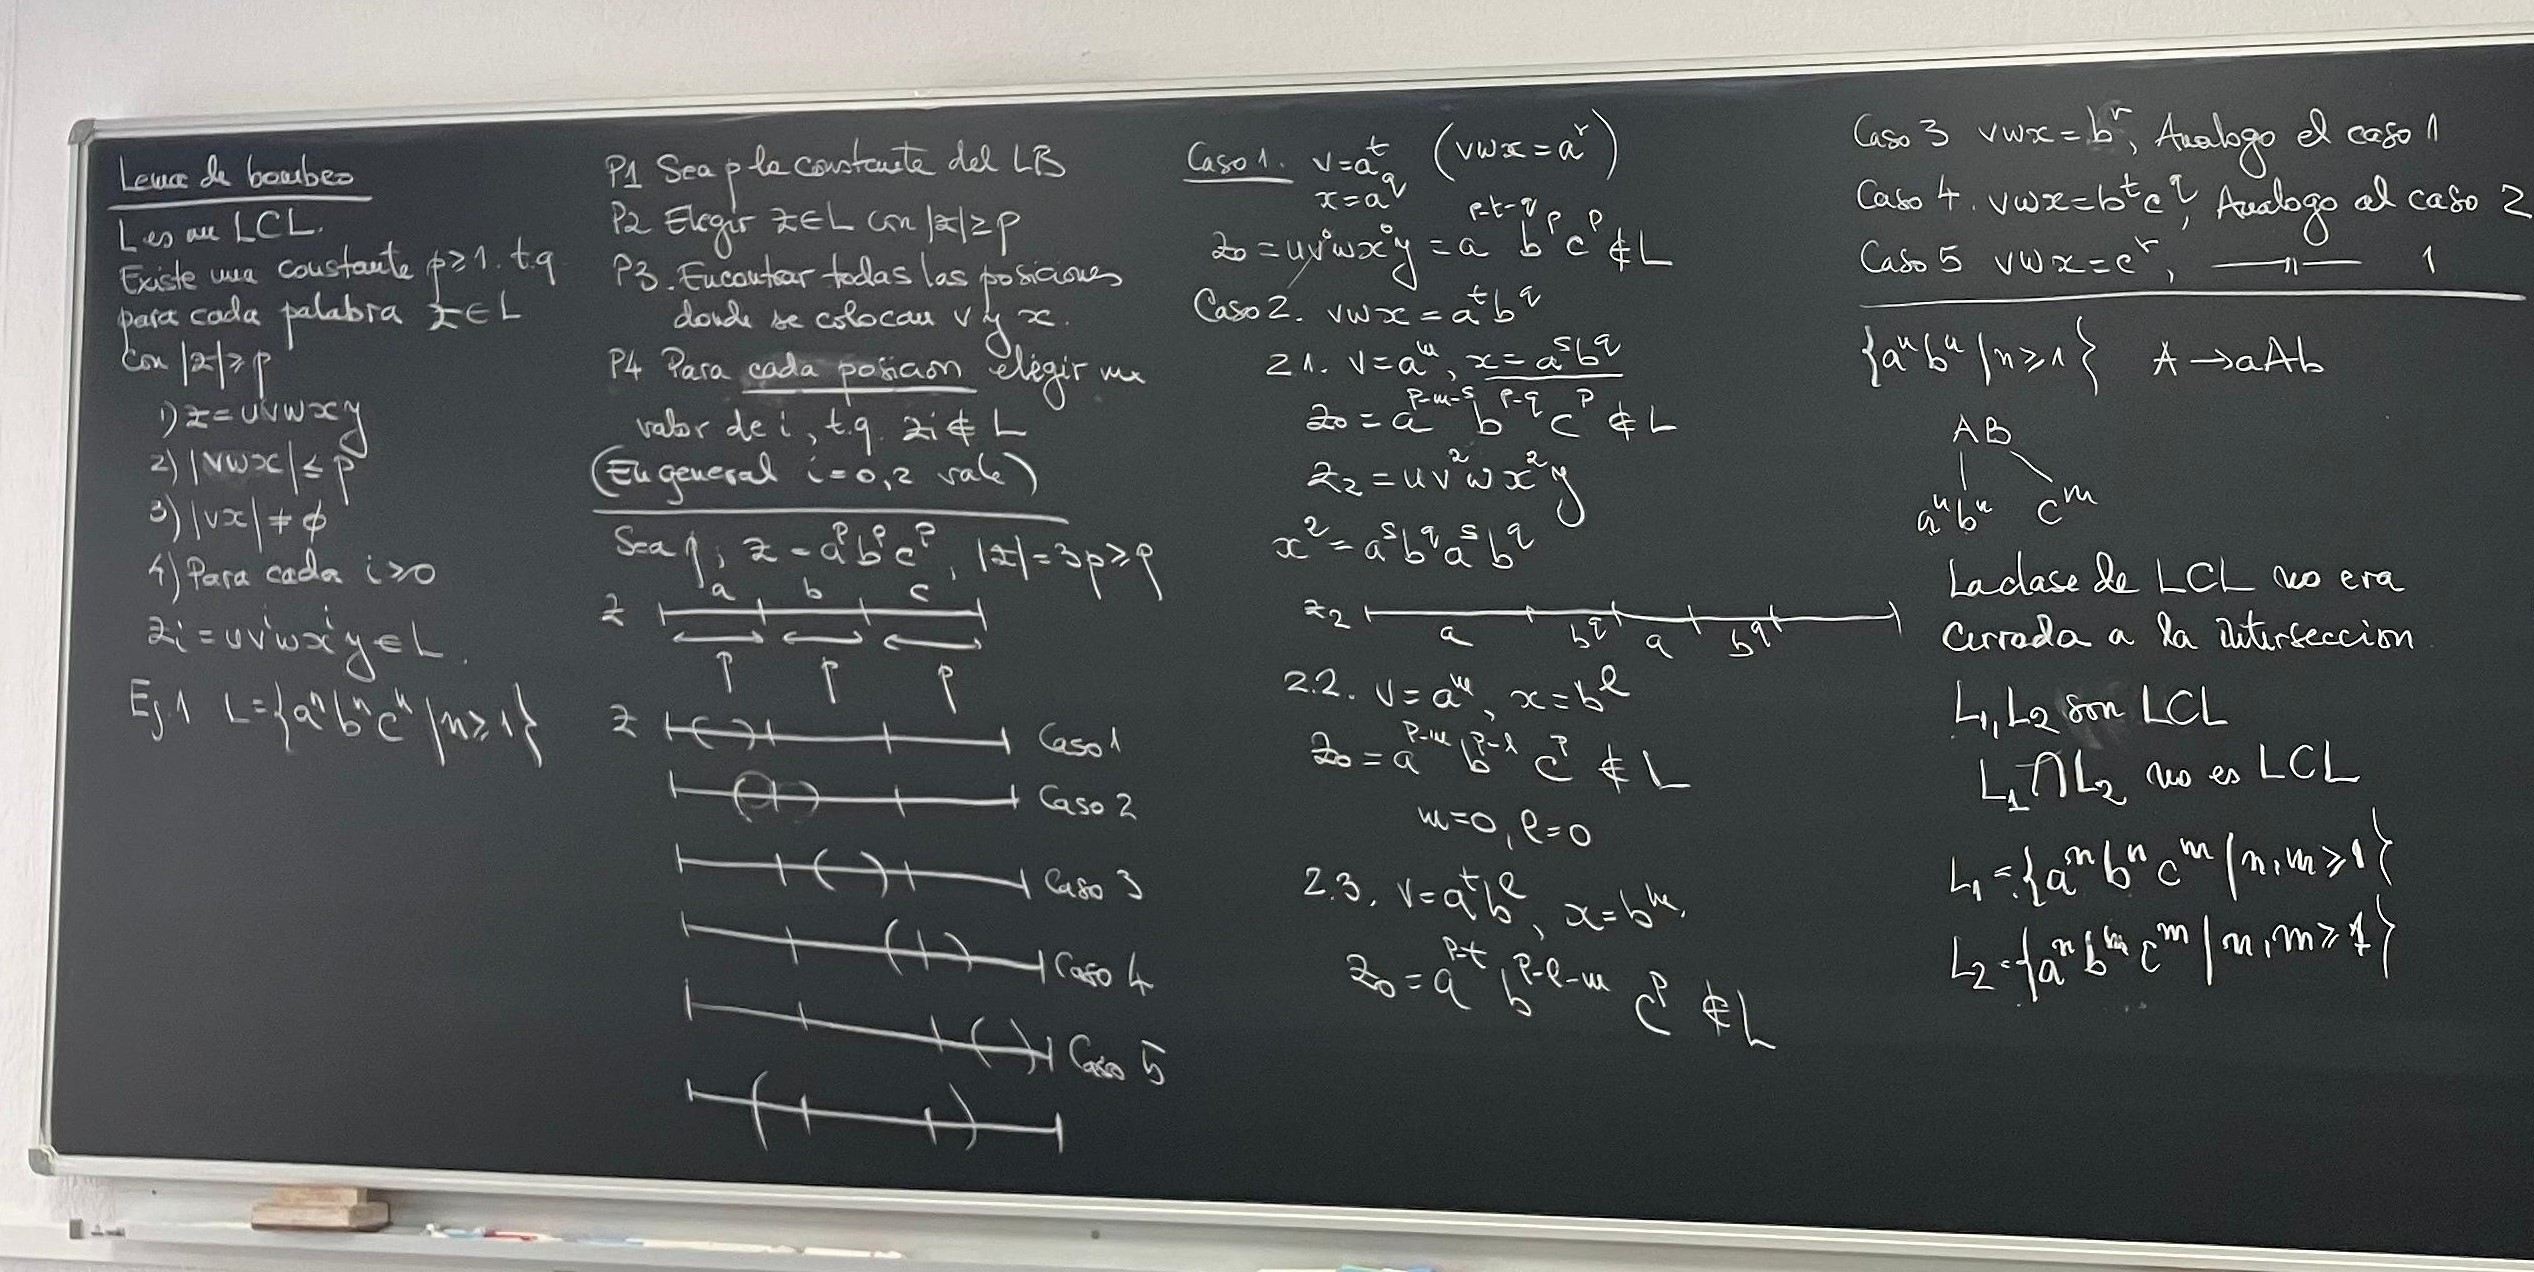 Lema de bombeo
L es un LCL.
Existe una constante p≥1. t.q
para cada palabra z∈L
Con |z|≥p
1) z=uvwxy
2) |vwx|≤p
3) |vx|≠ϕ
4) Para cada i≥0
zᵢ=uvⁱwxⁱy∈L.
Ej.1 L={aⁿbⁿcⁿ/n≥1}
P1 Sea p la constante del LB
P2 Elegir z∈L con |z|≥p
P3. Encontrar todas las posiciones
donde se colocan v y x.
P4 Para cada posicion elegir un
valor de i, t.q. zᵢ∉L
(En general i=0,2 vale)
Sea p, z=aᵖbᵖcᵖ, |z|=3p≥p
a b c
z
p p p
z Caso 1
Caso 2
Caso 3
Caso 4
Caso 5
Caso 1. v=aᵗ (vwx=aʳ)
x=a^q
z₀=uv⁰wx⁰y=a^(p-t-q) bᵖcᵖ∉L
Caso 2. vwx=aᵗb^q
2.1. v=aᵐ, x=aˢb^q
z₀=a^(p-m-s) b^(p-q) cᵖ∉L
z₂=uv²wx²y
x²=aˢb^q aˢb^q
z₂
a b^q a b^q
2.2. v=aᵐ, x=bˡ
z₀=a^(p-m) b^(p-l) cᵖ∉L
m=0, l=0
2.3. v=aᵗbˡ, x=bᵐ.
z₀=a^(p-t) b^(p-l-m) cᵖ∉L
Caso 3 vwx=bʳ, Analogo el caso 1
Caso 4. vwx=bᵗc^q, Analogo al caso 2
Caso 5 vwx=cʳ, —〃— 1
{aⁿbⁿ/n≥1} A→aAb
AB
aⁿbⁿ cᵐ
La clase de LCL no era
cerrada a la interseccion
L₁,L₂ son LCL
L₁∩L₂ no es LCL
L₁={aⁿbⁿcᵐ/n,m≥1}
L₂={aⁿbᵐcᵐ/n,m≥1}